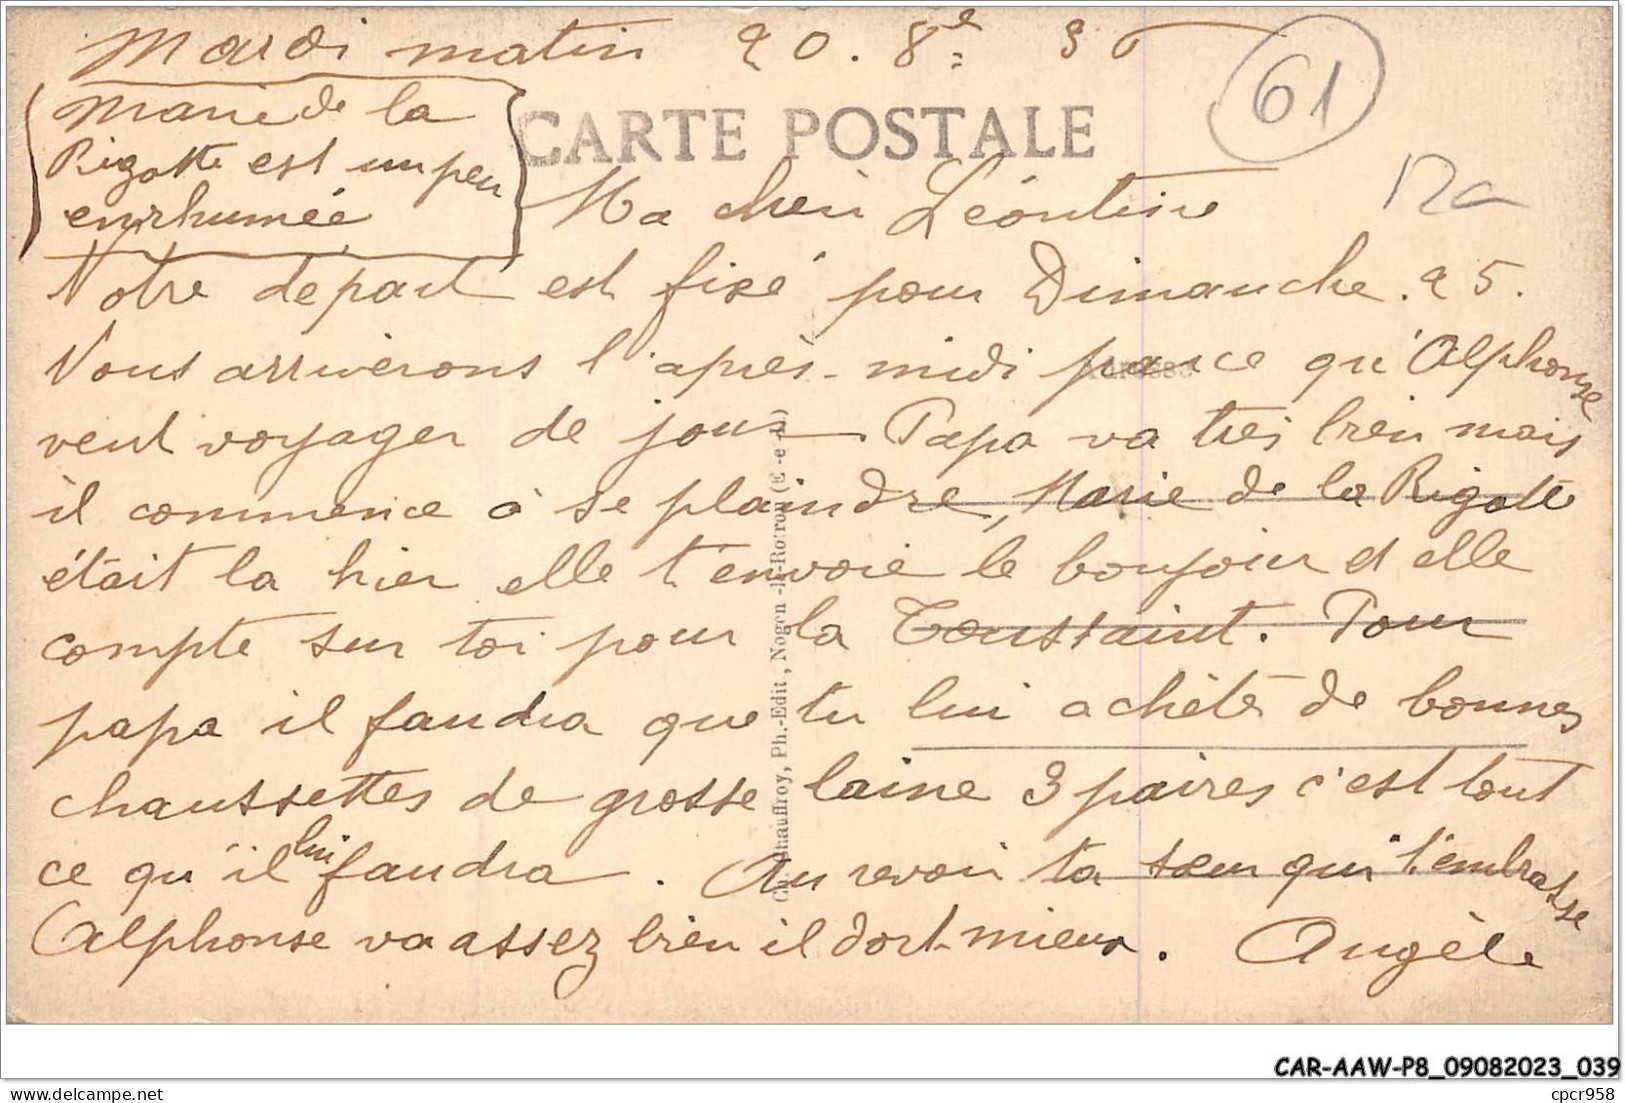 Mardi matin 20. 8e 36
Marie de la
Rigotte est un peu
enrhumée
CARTE POSTALE
61
Ma cheri Léontine
Notre départ est fixé pour Dimanche. 25.
Nous arriverons l'après-midi parce qu'Alphonse
veut voyager de jour. Papa va très bien mais
il commence à se plaindre, Marie de la Rigotte
était la hier elle t'envoie le bonjour et elle
compte sur toi pour la Toussaint. Pour
papa il faudra que tu lui achète de bonnes
chaussettes de grosse laine 3 paires c'est tout
ce qu'il lui faudra. Au revoir ta sœur qui t'embrasse
Alphonse va assez bien il dort mieux. Angèle
Ph.-Edit., Nogen -le-Rotrou (E -e -L)
CAR-AAW-P8_09082023_039
cpcr958